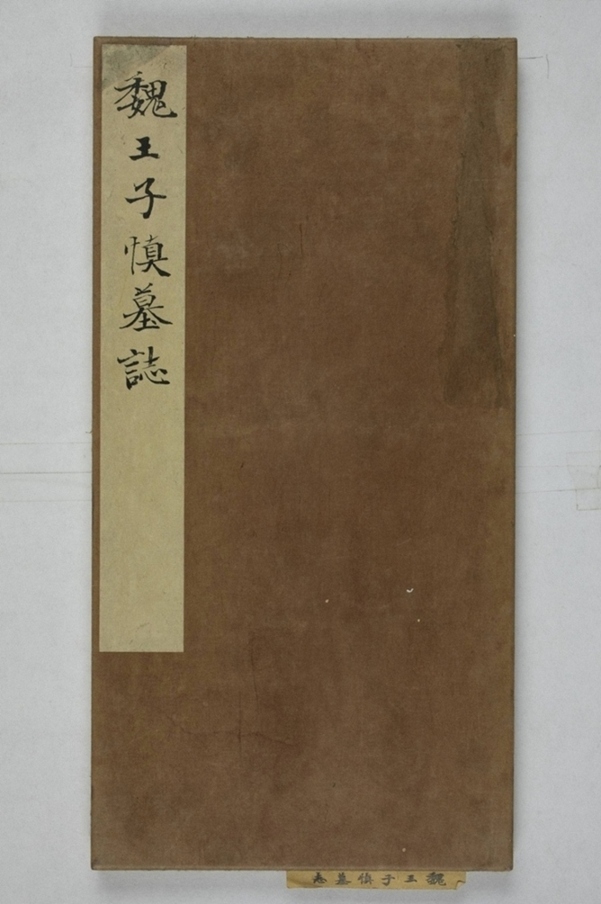 魏王子慎墓誌
魏王子慎墓志